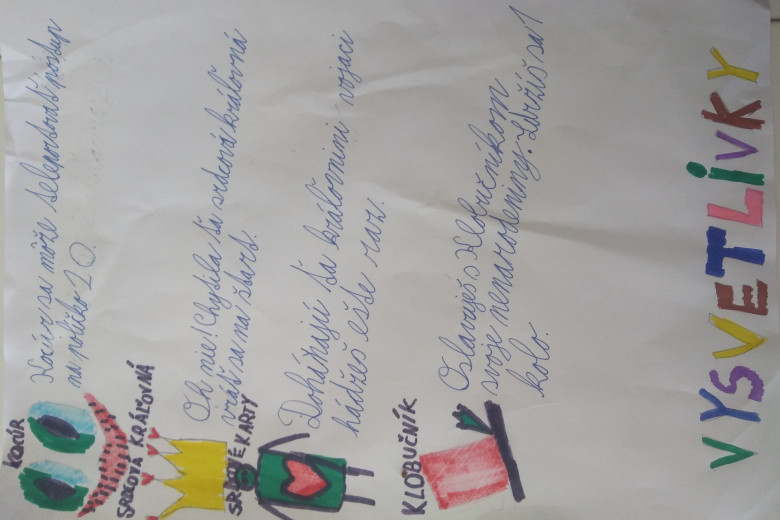 VYSVETLÍVKY
KOCÚR
Kocúr sa môže teleportovať postup
na políčko 20.
SRDCOVÁ KRÁĽOVNÁ
Oh nie! Chytila ťa srdcová kráľovná
vráť sa na štart.
SRDCOVÉ KARTY
Doháňajú ťa kráľovnini vojaci
hádžeš ešte raz.
KLOBUČNÍK
Oslavuješ s Klobučníkom
svoje nenarodeniny. Zdržíš sa 1
kolo.